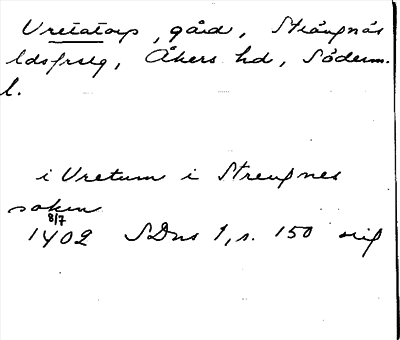 Vretatorp, gård, Strängnäs
ldsfrslg, Åkers hd, Söderm.
l.
i Vretum i Strengnes
sokn
8/7
1402 SDns 1, s. 150 orig